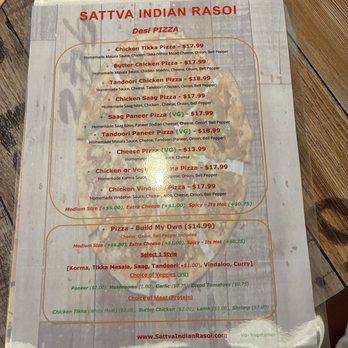 SATTVA INDIAN RASOI
Desi PIZZA
Chicken Tikka Pizza - $17.99
Homemade Masala Sauce, Chicken Tikka (White Meat) Cheese, Onion, Bell Pepper
Butter Chicken Pizza - $17.99
Homemade Masala Sauce, Chicken Makhni, Cheese, Onion, Bell Pepper
Tandoori Chicken Pizza - $18.99
Homemade Masala Sauce, Cheese, Tandoori (Chicken), Onion, Bell Pepper
Chicken Saag Pizza - $17.99
Homemade Saag Sauce, Chicken, Cheese, Onion, Bell Pepper
Saag Paneer Pizza (VG) - $17.99
Homemade Saag Sauce, Paneer (Indian Cheese), Cheese, Onion, Bell Pepper
Tandoori Paneer Pizza (VG) - $18.99
Homemade Masala Sauce, Cheese, Tandoori Paneer, Onion, Bell Pepper
Cheese Pizza (VG) - $13.99
Sauce, Cheese
Chicken or Pizza - $17.99
Homemade Korma Sauce, Cheese, Onion, Bell Pepper
Chicken Pizza - $17.99
Homemade Vindaloo Sauce, Chicken, Cheese, Onion, Bell Pepper
Medium Size (+$5.00), Extra Cheese (+$1.00), Spicy - Its Hot (+$0.75)
Pizza - Build My Own ($14.99)
Cheese, Onion, Bell Pepper Included
Medium Size (+$5.00), Extra Cheese (+$1.00), Spicy - Its Hot (+$0.75)
Select 1 Style
[Korma, Tikka Masala, Saag, Tandoori +$1.00), Vindaloo, Curry]
Choice of Veggies (VG)
Paneer ($2.00), Mushrooms (1.00), Garlic ($0.75), Diced Tomatoes ($0.75)
Choice of Meat (Protein)
Chicken Tikka (White Meat) ($2.00), Butter Chicken $2.00), Lamb ($3.00), Shrimp
www.SattvaIndianRasoi.com
VG- Vegetarian